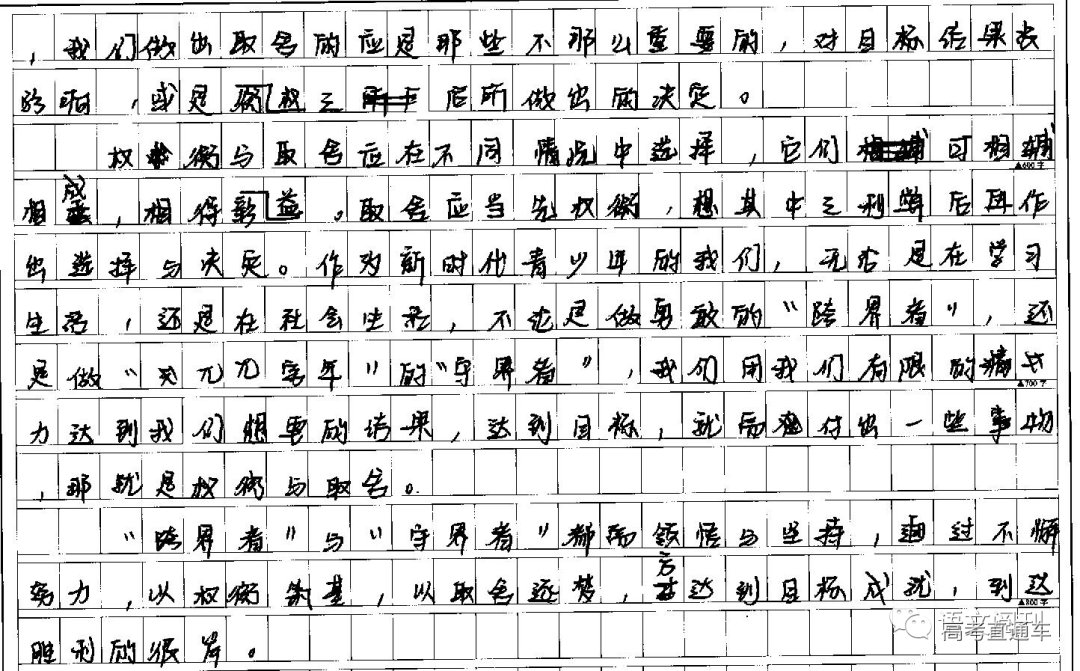 ，我们做出取舍的应是那些不那么重要的，对目标结果没
影响，或是权之后所做出的决定。
权衡与取舍应在不同情况中选择，它们可相辅
▲600字
相成，相得彰益。取舍应当先权衡，想其中之利弊后再作
出选择与决定。作为新时代青少年的我们，无论是在学习
生活，还是在社会生活，不论是做勇敢的“跨界者”，还
是做“兀兀穷年”的“守界者”，我们用我们有限的精力
▲700字
力达到我们想要的结果，达到目标，就需付出一些事物
，那就是权衡与取舍。
“跨界者”与“守界者”都需领悟与坚持，通过不懈
努力，以权衡筑基，以取舍逐梦，方达到目标成就，到达
▲800字
胜利的彼岸。
语文周刊
高考直通车